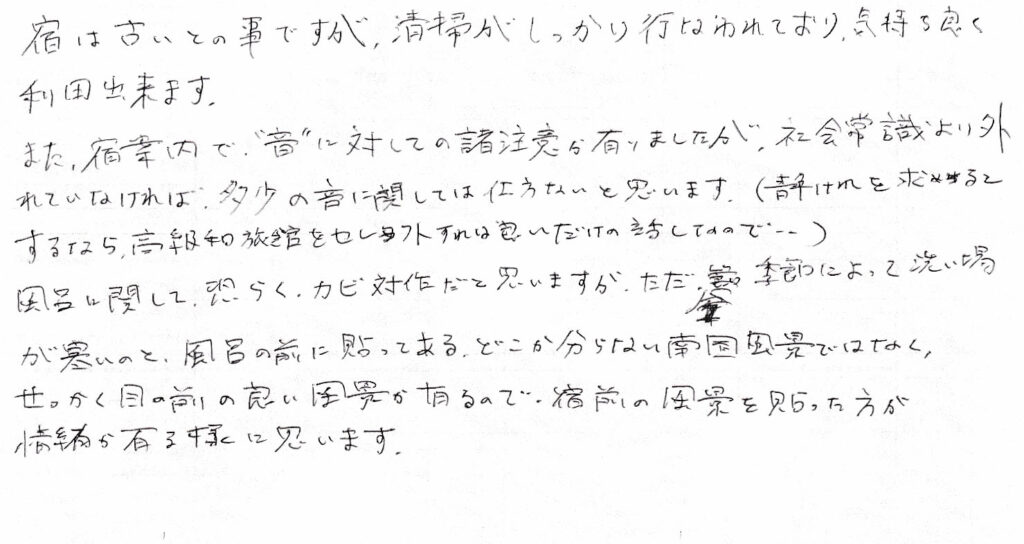 宿は古いとの事ですが、清掃がしっかり行なわれており、気持ち良く
利用出来ます。
また、宿案内で、“音”に対しての諸注意が有りましたが、社会常識より外
れていなければ、多少の音に関しては仕方ないと思います。(静けさを求めると
するなら、高級和旅館をセレクトすれば良いだけの話しなので…)
風呂に関して、恐らく、カビ対作だと思いますが、ただ、季節によって洗い場
が寒いのと、風呂の前に貼ってある、どこか分らない南国風景ではなく、
せっかく目の前の良い風景が有るので、宿前の風景を貼った方が
情緒が有る様に思います。